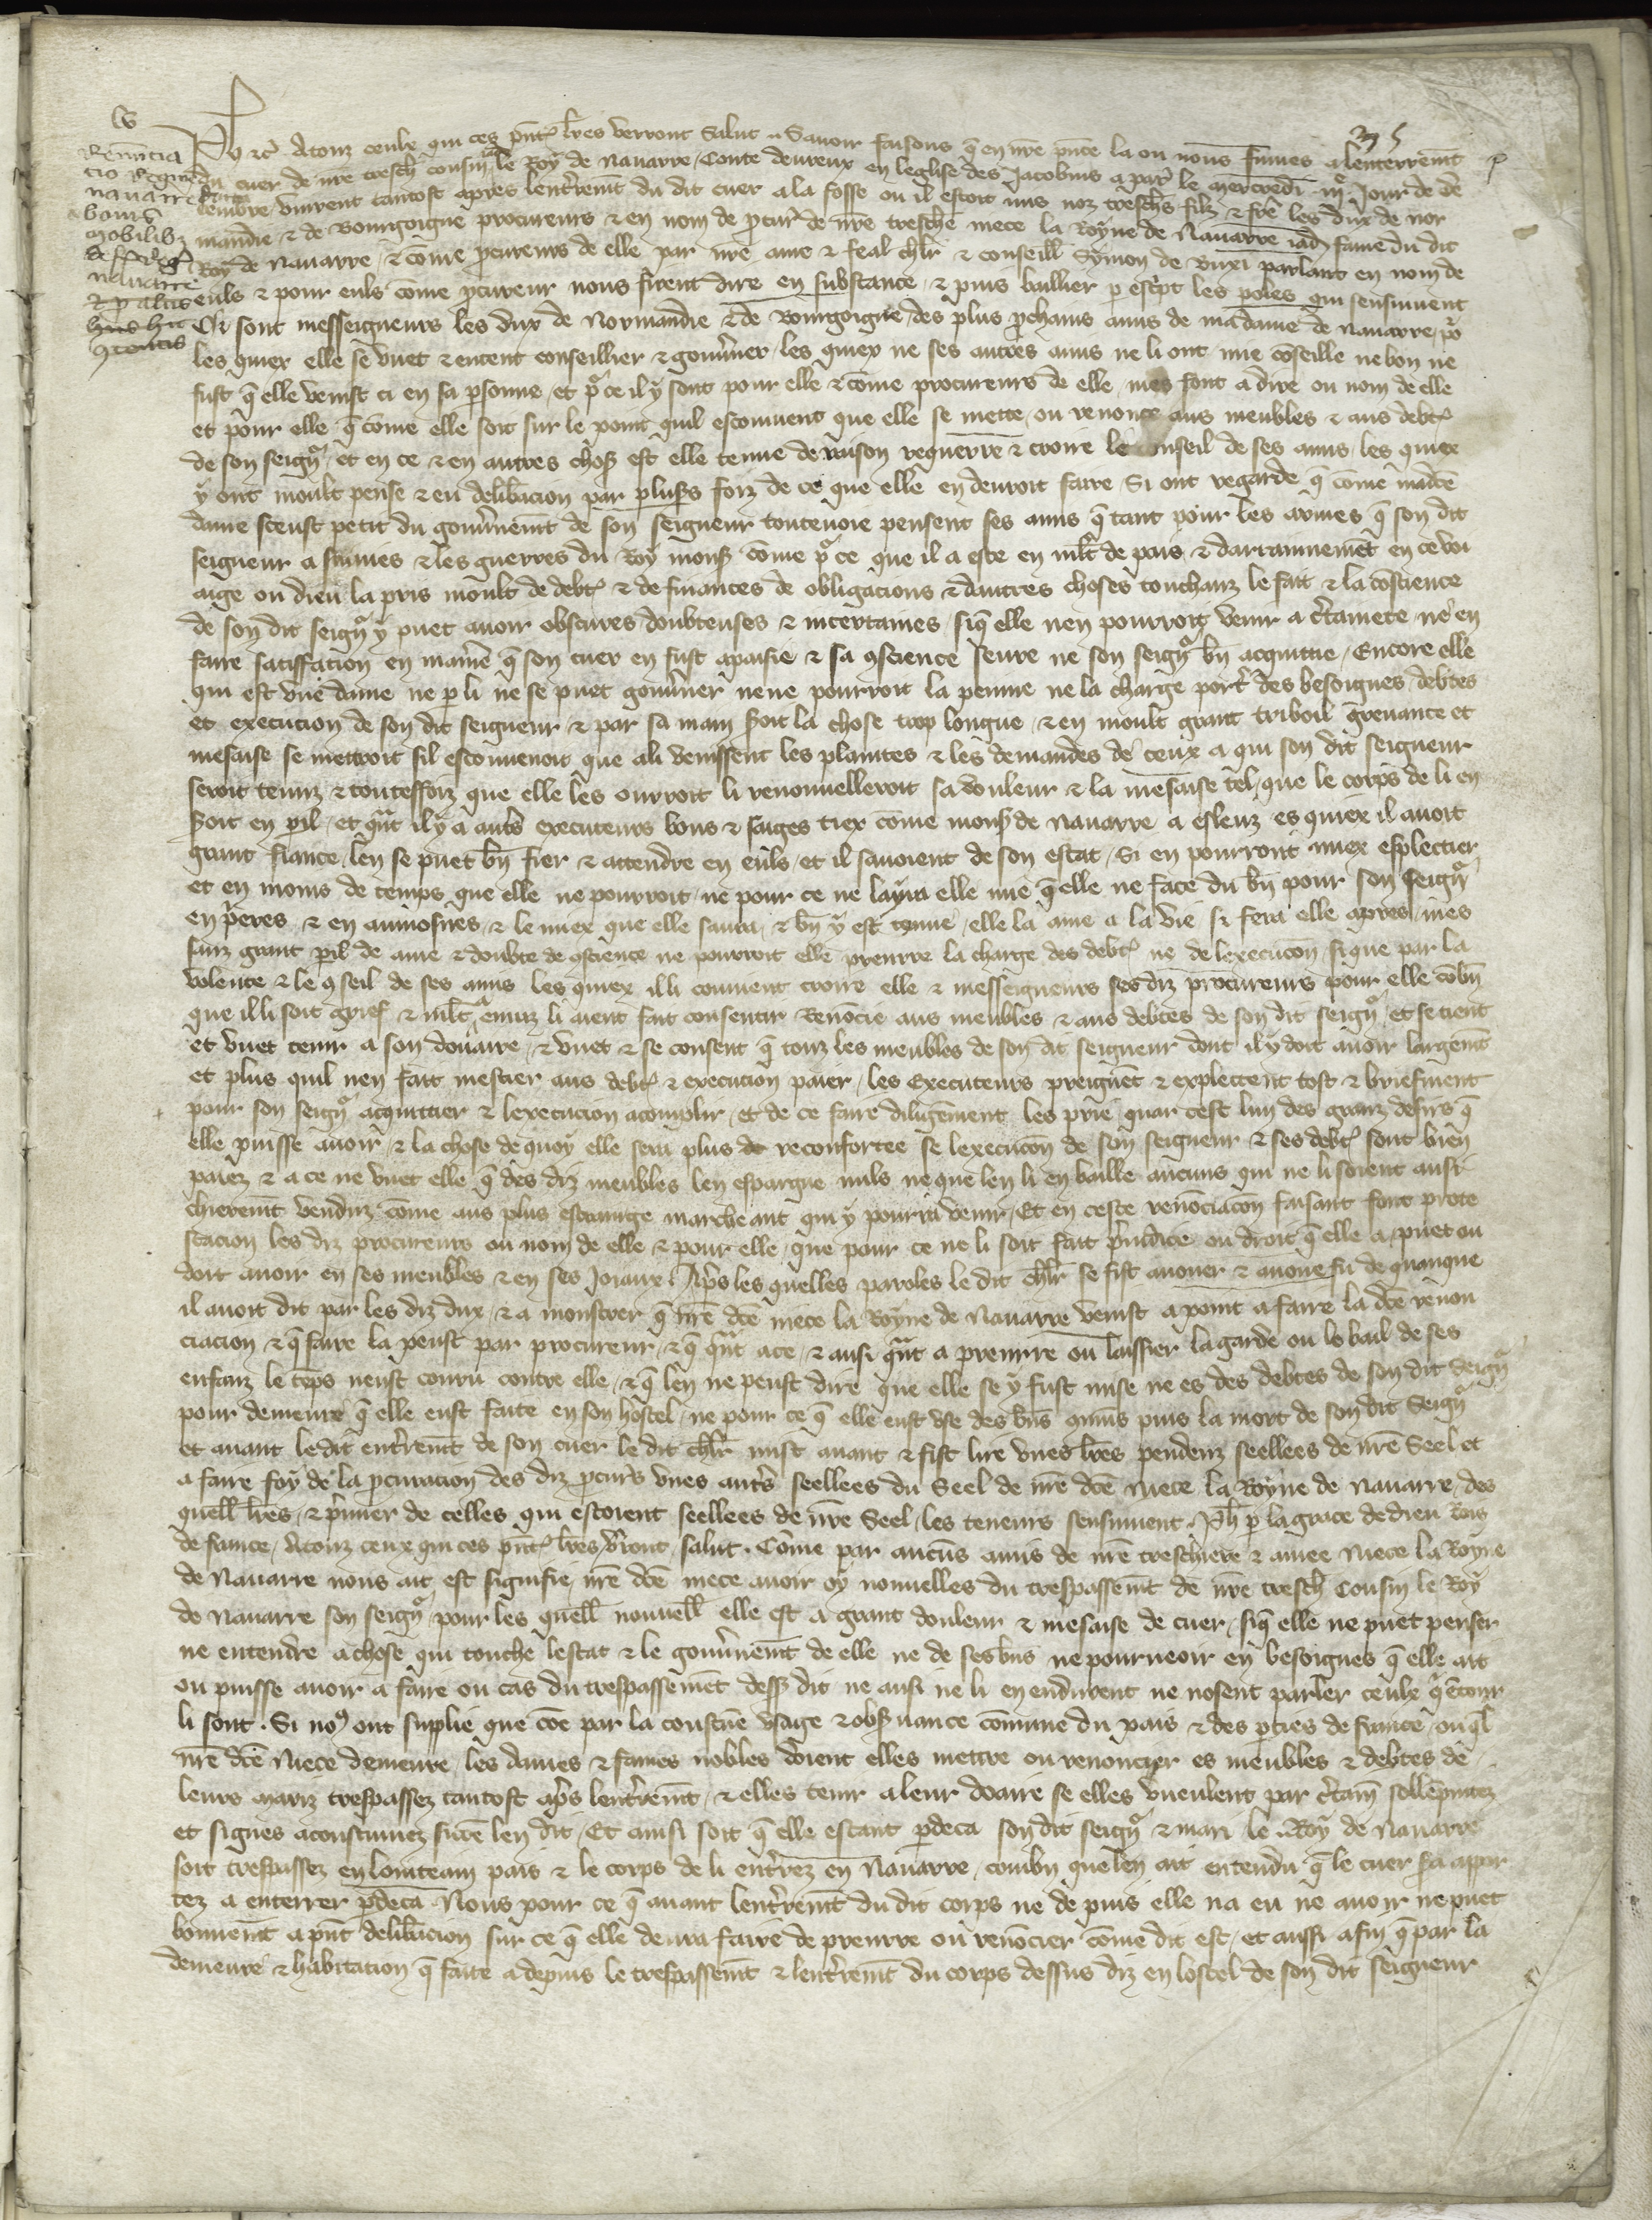 Ph etc Atouz ceulx qui ces pntes lres verront Salut. Savoir faisons q en nre pnce la ou nous fumes a lenterremt
du cuer de nre tresch cousin le Roy de Navarre, Conte devreux en leglise des Jacobins a par le mercredi jour de de
cembre, vinrent tantost apres lentremt du dit cuer a la fosse ou il estoit mis noz treschs filz & fre les dux de nor
mandie & de Bourgoigne procureurs & en nom de pcur de nre tresche niece la Royne de Navarre iad fame du dit
Roy de Navarre, & come pcureurs de elle par nre ame & feal chlr & conseill Symon de Buxi parlant en nom de
euls & pour euls come pcureur nous firent dire en substance, & puis baillier p escpt les poles qui sensuivent
Ci sont messeigneurs les dux de Normandie & de Bourgoigne, des plus pchains amis de madame de Navarre, p
les quiex elle se vuet & entent conseillier & gouvner, les quiex ne ses autres amis ne li ont mie coseille ne bon ne
fust q elle venist ci en sa psonne, et p ce il y sont pour elle & come procureurs de elle, mes font a dire ou nom de elle
et pour elle, q come elle soit sur le point quil escouvient que elle se mette, ou renonce aus meubles & aus debts
de son seign, et en ce & en autres chos est elle tenue de raison requerre & croire le conseil de ses amis, les quiex
y ont moult pense & eu delibacion par pluss foiz de ce que elle en devroit faire, Si ont regarde q come madce
dame sceust petit du gouvnemt de son seigneur toutevoie pensent ses amis q tant pour les armes q son dit
seigneur a suivies & les guerres du Roy mons come p ce que il a este en mlt de pais, & darrainnemet en ce voi
aige ou dieu la pris moult de debts & de finances de obligacions & dautres choses touchanz le fait & la coscience
de son dit seign y puet avoir obscures doubteuses & incertaines, siq elle nen pourroit venir a ctainete, ne en
faire satiffacion en manie q son cuer en fust apaisie & sa 9science seure ne son seign bn acquittie, Encore elle
qui est une dame ne p li ne se puet gouvner ne ne pourroit la peinne ne la charge port des besoignes, debtes
et execucion de son dit seigneur & par sa main soit la chose trop longue, & en moult grant triboil grevance et
mesaise se mettroit sil escouvenoit que a li venissent les plaintes & les demandes de ceux a qui son dit seigneur
seroit tenuz & touteffoiz que elle les ourroit li renouvelleroit sa douleur & la mesaise tel, que le corps de li en
soit en pil, et qnt il y a auts executeurs bons & saiges tiex come mons de Navarre a esleuz es quiex il avoit
grant fiance, len se puet bn fier & attendre en euls, et il savoient de son estat, Si en pourront miex esplectier
et en moins de temps que elle ne pourroit, ne pour ce ne layra elle mie q elle ne face du bn pour son seign
en pieres & en aumosnes, & le miex que elle saura, & bn y est tenue, elle la ame a la vie si fera elle apres, mes
sanz grant pil de ame & doubte de 9science ne pourroit elle prenrre la charge des debts ne de lexecucon, si que par la
volente & le 9seil de ses amis les quiex il li convient croire elle & messeigneurs ses diz procureurs pour elle cobn
que il li soit grief & mlt envuiz li aient fait consentir Renocie aus meubles & aus debtes de son dit seign, et se tient
et vuet tenir a son douaire, & vuet & se consent q touz les meubles de son dit seigneur dont il y doit avoir largemt
et plus quil nen fait mestier aus debts & execucion paier, les Executeurs preignet & explectent tost & briefment
pour son seign acquittier & lexecucion acomplir, et de ce faire diligemment les prie, quar cest lun des granz desirs q
elle puisse avoir, & la chose de quoy elle sera plus reconfortee se lexecucon de son seigneur & ses debts sont bien
paiez & a ce ne vuet elle q des diz meubles len espargne nuls ne que len li en baille aucuns qui ne li soient ausi
chieremt venduz come aus plus estrainge marcheant qui y pourra venir, Et en ceste renociacon faisant font prote
stacion les diz procureurs ou nom de elle & pour elle, que pour ce ne li soit fait piudice ou droit q elle a puet ou
doit avoir en ses meubles & en ses Joiaux. Aps les quelles paroles le dit chlr se fist avouer & avoue fu de quanque
il avoit dit par les diz dux, & a monstrer q nre dce niece la Royne de Navarre venist a point a faire la dce renon
ciacion & q faire la peust par procureur, & q qnt a ce, & ausi qnt a prenrre ou laissier la garde ou le bail de ses
enfanz le teps neust couru contre elle, & q len ne peust dire que elle se y fust mise ne es des debtes de son dit seign
pour demeure q elle eust faite en son hostel, ne pour ce q elle eust use des bns qmuns puis la mort de son dit Seign
et avant le dit entremt de son cuer le dit chlr mist avant & fist lire unes lres pendenz seellees de nre Seel et
a faire foy de la pcuracion des diz pcurs unes auts seellees du Seel de nre dce Niece la Royne de Navarre, des
quell lres, & pmier de celles qui estoient seellees de nre Seel, les teneurs sensuivent. Ph p la grace de dieu Rois
de france, Atouz ceux qui ces pnts lres vront, salut. Come par aucuns amis de nre treschiere & amee Niece la Royne
de Navarre nous ait est signifie, nre dce niece avoir oy nouvelles du trespassemt de nre tresch Cousin le Roy
de Navarre son seign, pour les quell nouvell elle est a grant douleur & mesaise de cuer, siq elle ne puet penser
ne entendre a chose qui touche lestat & le gouvnemt de elle ne de ses bns ne pourveoir en besoignes q elle ait
ou puisse avoir a faire ou cas du trespassemet dess dit ne ausi ne li en endurent ne nosent parler ceulx q etour
li sont. Si no9 ont supplie que coe par la coustue usage & obsvance comune du pais & des pties de france, ou ql
nre dce Niece demeure, les dames & fames nobles doient elles mettre ou renoncier es meubles & debtes de
leurs mariz trespassez tantost aps lentremt, & elles tenir a leur doaire se elles vueulent par ctain sollepnitez
et signes acoustumez si come len dit, Et ainsi soit q elle estant pdeca son dit seign & mari le Roy de Navarre
soit trespassez en lointeain pais & le corps de li entrez en Navarre, combn que len ait entendu q le cuer sa appor
tez a enterrer pdeca Nous pour ce q avant lentremt du dit corps ne de puis elle na eu ne avoir ne puet
bonnemt a pnt delibacion sur ce q elle devra faire de prenrre ou renocier come dit est, et aussi afin q par la
demeure & habitacion q faite a depuis le trespassemt & lentremt du corps dessus diz en lostel de son dit seigneur